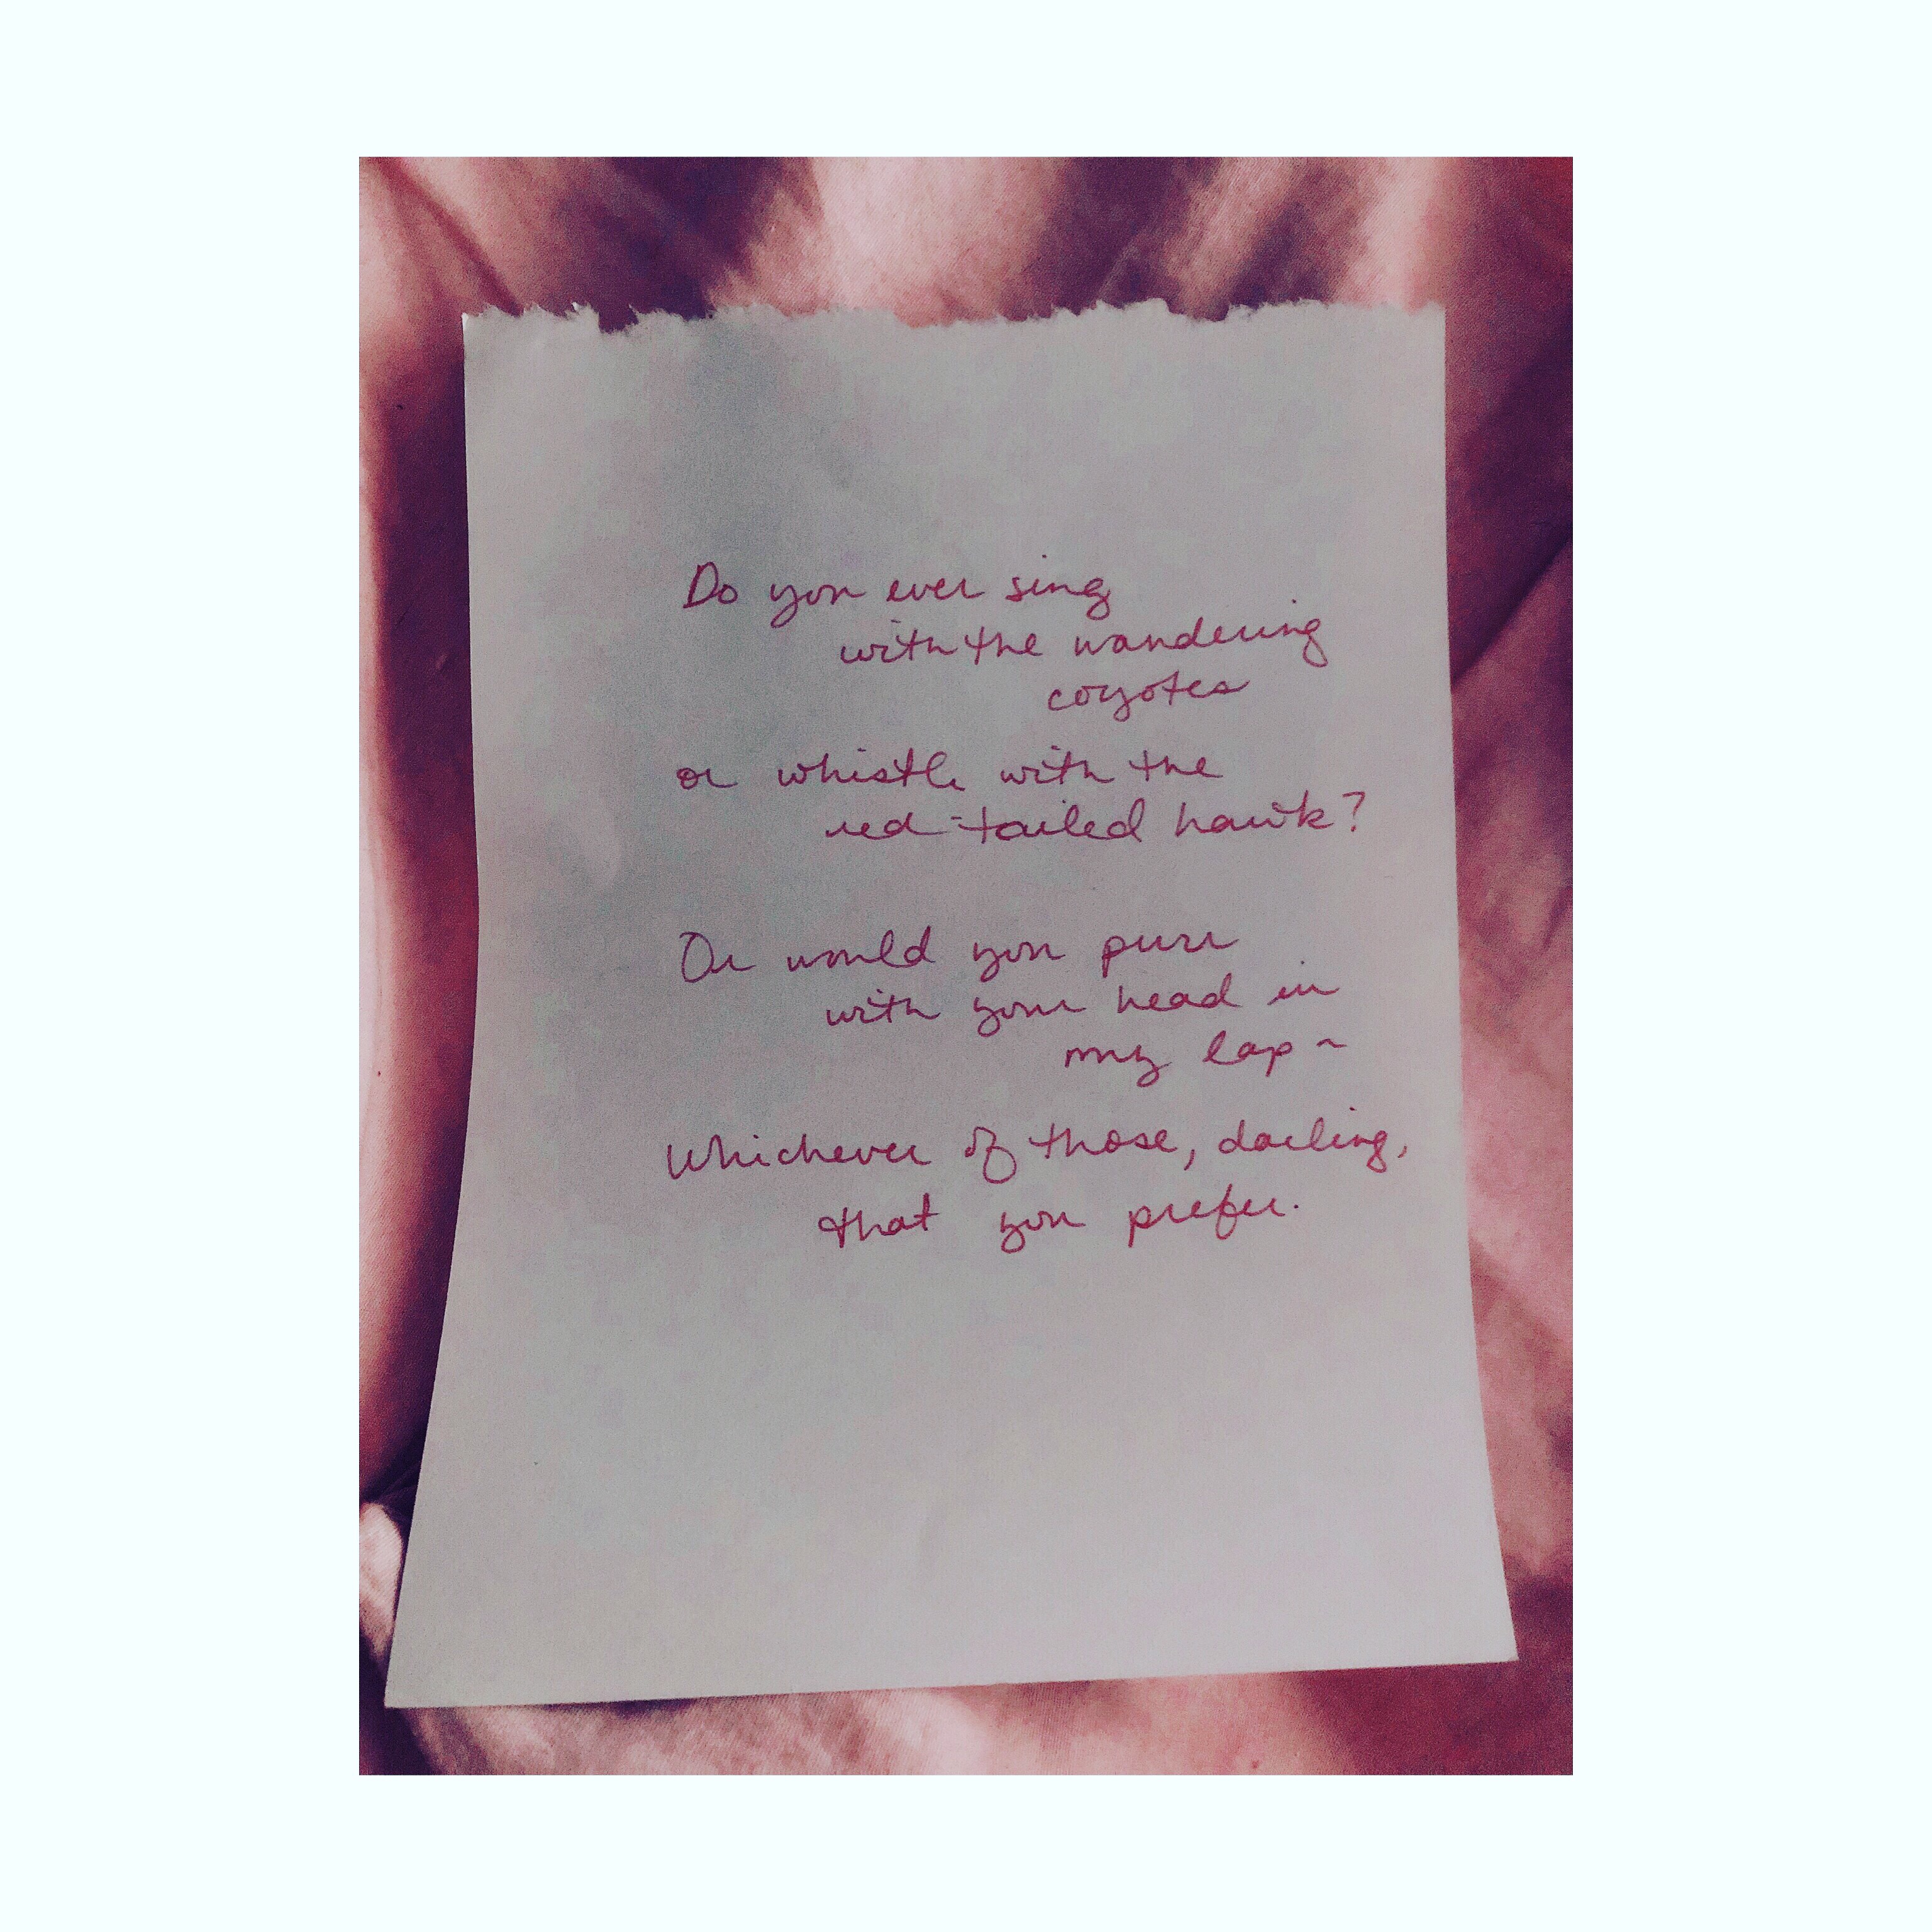 Do you ever sing
with the wandering
coyotes
or whistle with the
red-tailed hawk?
Or would you purr
with your head in
my lap ~
Whichever of those, darling,
that you prefer.